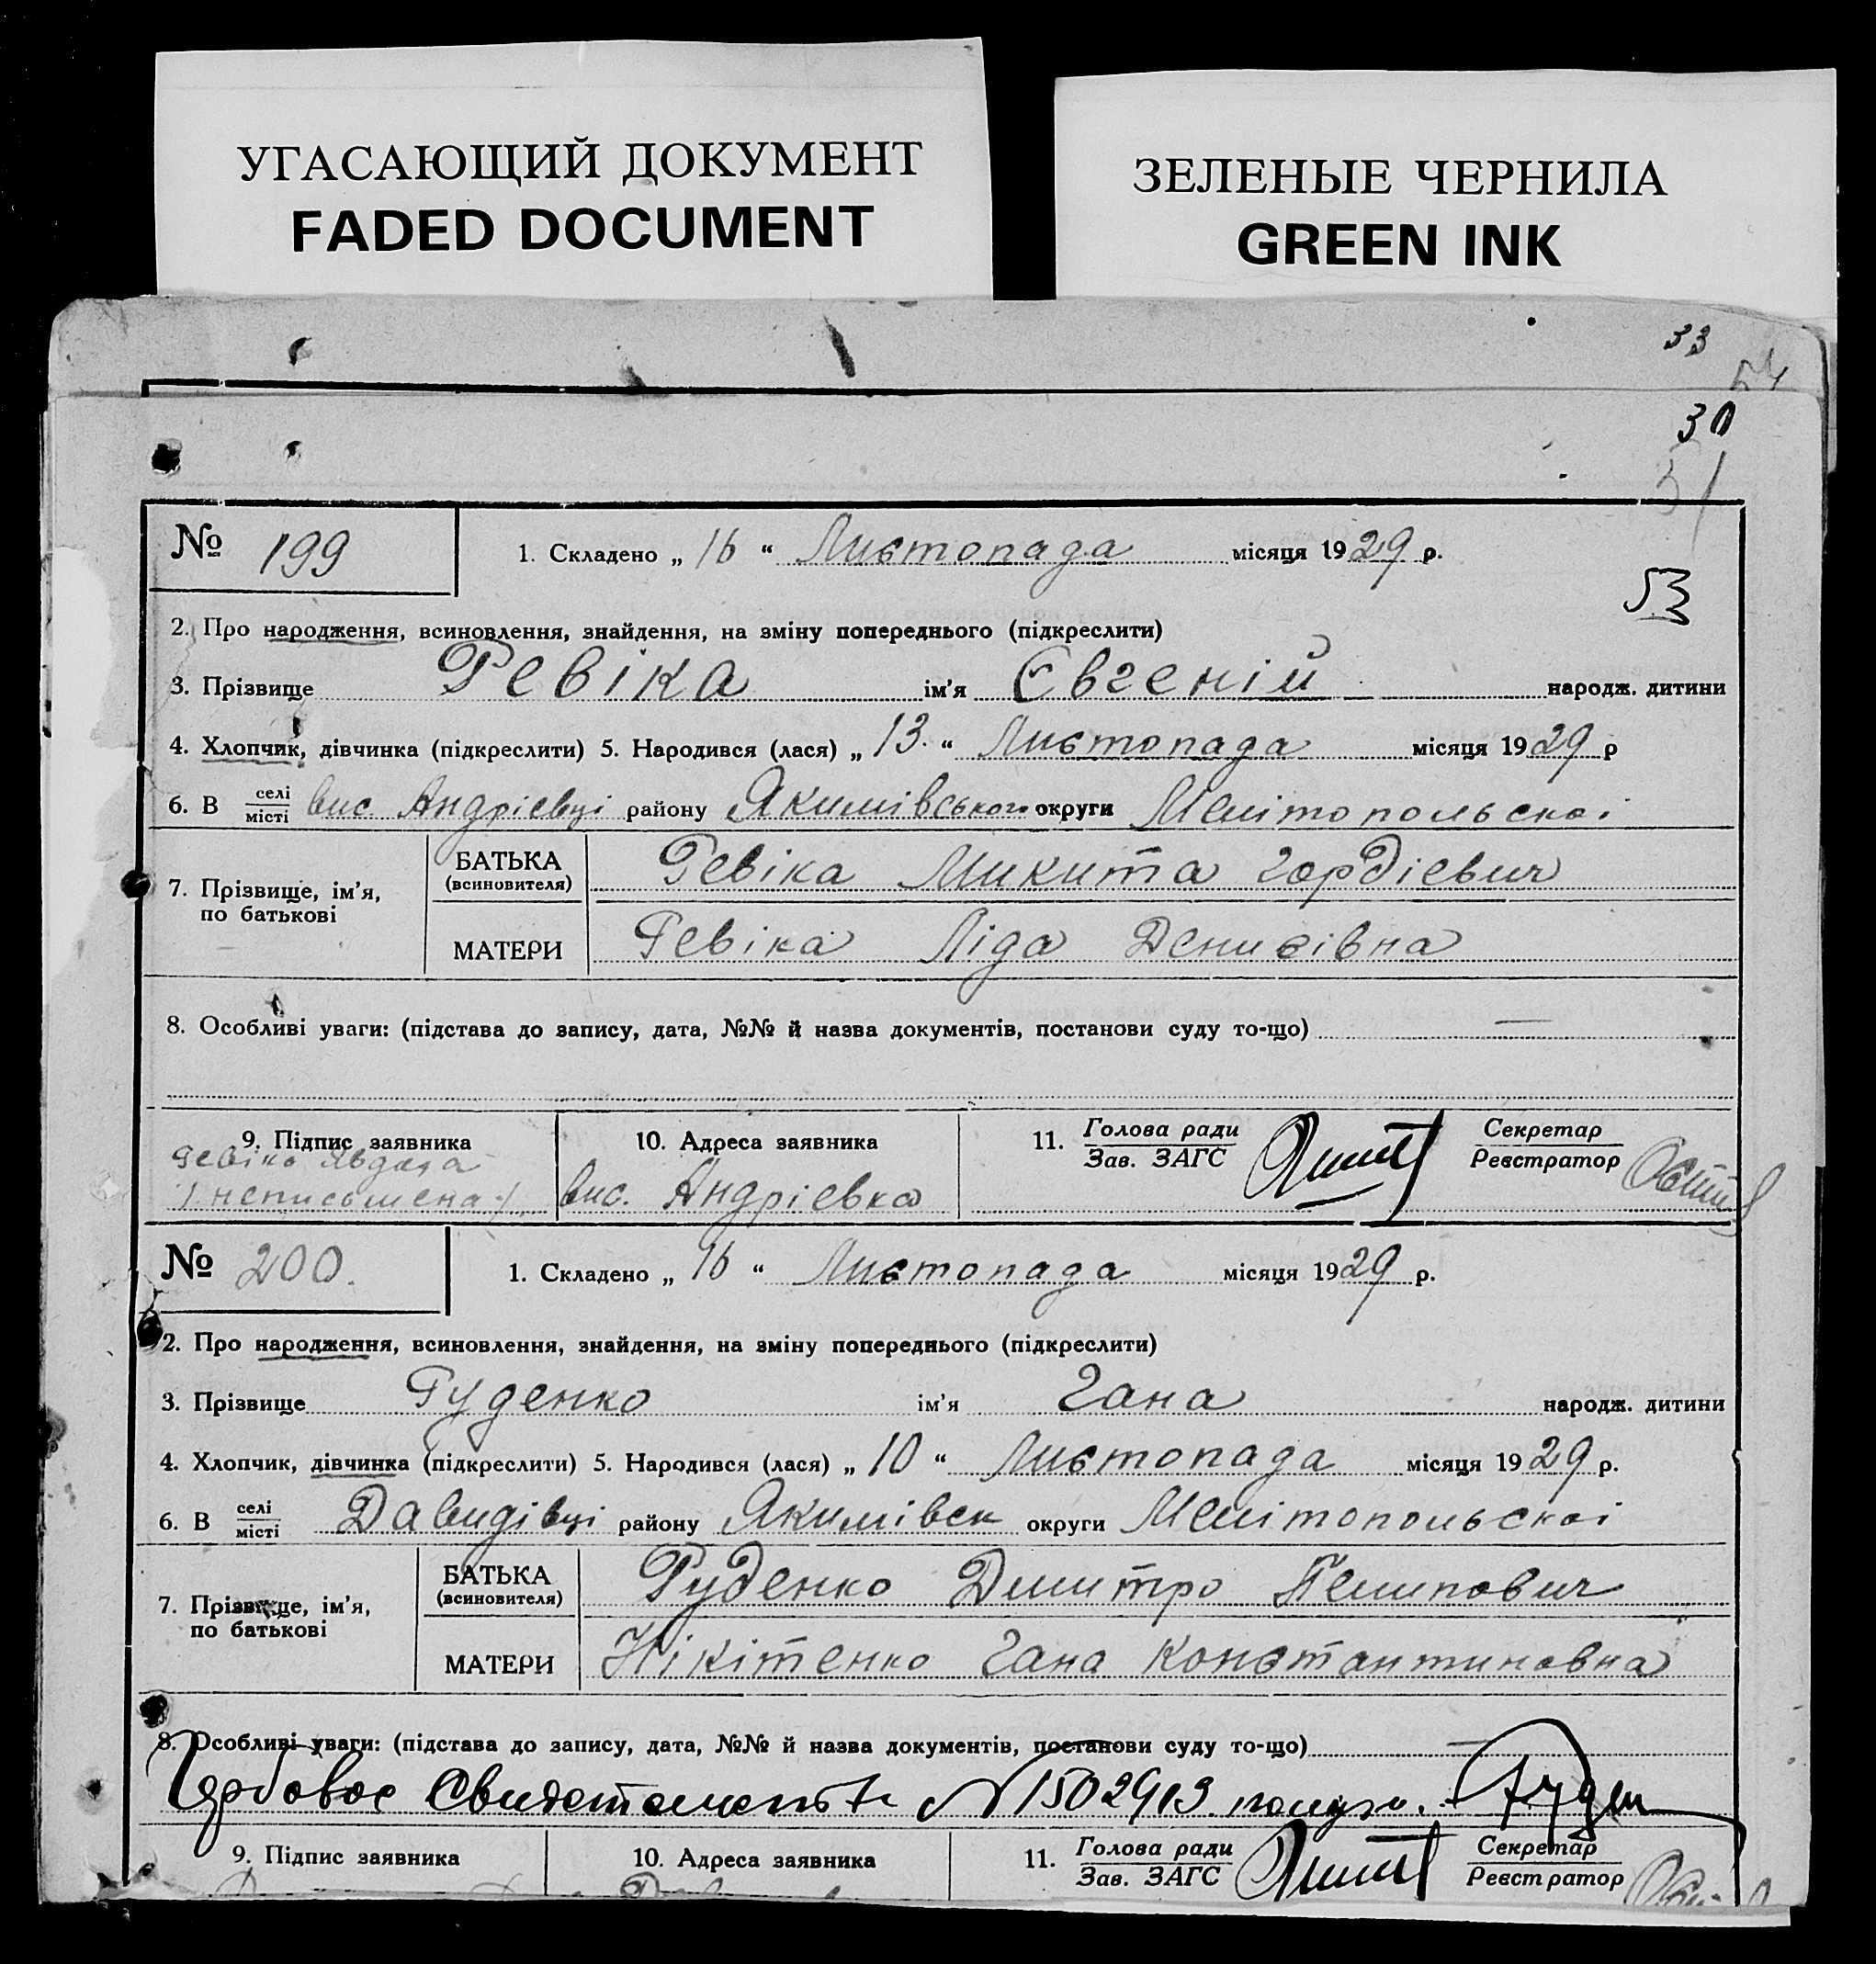 УГАСАЮЩИЙ ДОКУМЕНТ
FADED DOCUMENT
ЗЕЛЕНЫЕ ЧЕРНИЛА
GREEN INK
33
54
30
51
№ 199
1. Складено „ 16 “ Листопада місяця 1929 р.
53
2. Про народження, всиновлення, знайдення, на зміну попереднього (підкреслити)
3. Прізвище Ревіка ім’я Євгеній народж. дитини
4. Хлопчик, дівчинка (підкреслити) 5. Народився (лася) „ 13. “ Листопада місяця 1929 р
6. В селі місті вис. Андрієвці району Якимівського округи Мелітопольскоі
7. Прізвище, ім’я, по батькові
БАТЬКА (всиновителя) Ревіка Микита Гордієвич
МАТЕРИ Ревіка Ліда Денисівна
8. Особливі уваги: (підстава до запису, дата, №№ й назва документів, постанови суду то-що) —
9. Підпис заявника
(неписьмена)
10. Адреса заявника
вис. Андрієвка
11. Голова ради Зав. ЗАГС
Секретар Реєстратор
№ 200.
1. Складено „ 16 “ Листопада місяця 1929 р.
2. Про народження, всиновлення, знайдення, на зміну попереднього (підкреслити)
3. Прізвище Руденко ім’я Гана народж. дитини
4. Хлопчик, дівчинка (підкреслити) 5. Народився (лася) „ 10 “ Листопада місяця 1929 р.
6. В селі місті Давидівці району Якимівск округи Мелітопольскоі
7. Прізвище, ім’я, по батькові
БАТЬКА (всиновителя) Руденко Дмитро Пилипович
МАТЕРИ Нікітенко Гана Константиновна
8. Особливі уваги: (підстава до запису, дата, №№ й назва документів, постанови суду то-що) —
N 1502913
9. Підпис заявника
10. Адреса заявника
11. Голова ради Зав. ЗАГС
Секретар Реєстратор